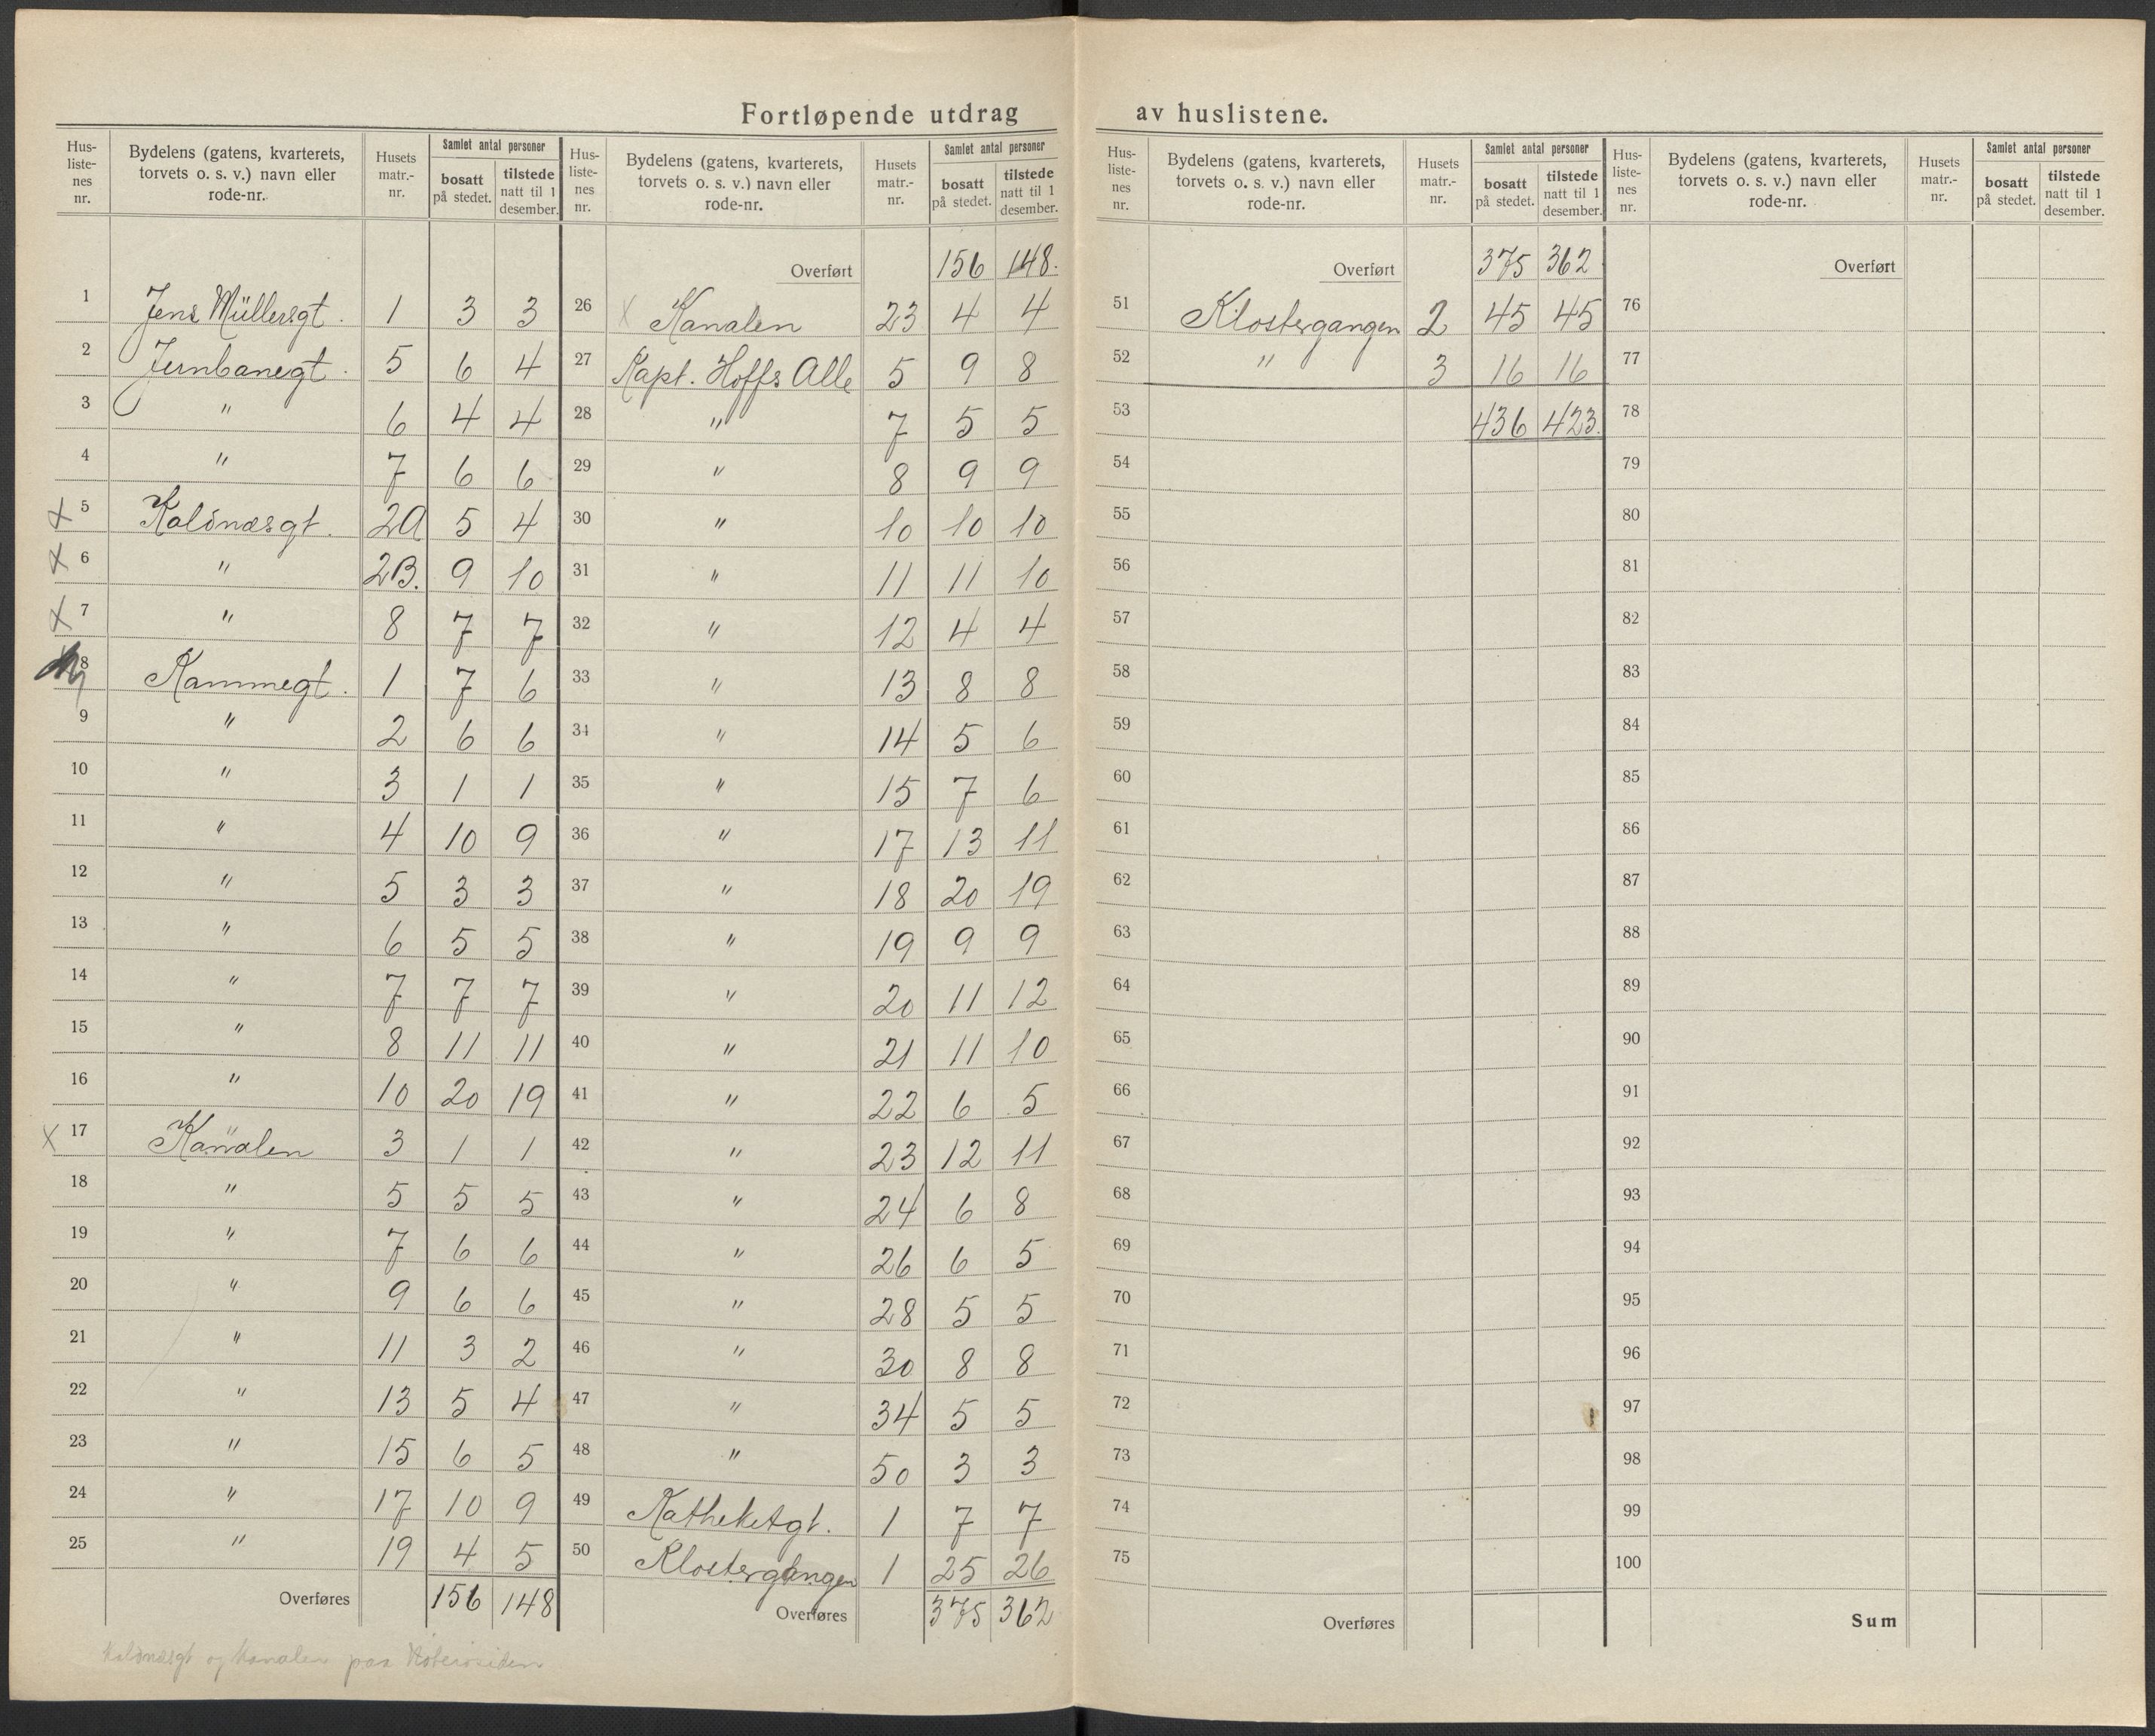 Fortløpende utdrag av huslistene.
Hus-listenes nr. | Bydelens (gatens, kvarterets, torvets o. s. v.) navn eller rode-nr. | Husets matr.-nr. | Samlet antal personer bosatt på stedet. | tilstede natt til 1 desember.
1 Jens Müllersgt. 1 3 3
2 Jernbanegt. 5 6 4
3 " 6 4 4
4 " 7 6 6
x 5 Kaldnæsgt. 2A 5 4
x 6 " 2B. 9 10
x 7 " 8 7 7
8 Kammegt. 1 7 6
9 " 2 6 6
10 " 3 1 1
11 " 4 10 9
12 " 5 3 3
13 " 6 5 5
14 " 7 7 7
15 " 8 11 11
16 " 10 20 19
x 17 Kanalen 3 1 1
18 " 5 5 5
19 " 7 6 6
20 " 9 6 6
21 " 11 3 2
22 " 13 5 4
23 " 15 6 5
24 " 17 10 9
25 " 19 4 5
Overføres 156 148
Kaldnæsgt og Kanalen paa
Hus-listenes nr. | Bydelens (gatens, kvarterets, torvets o. s. v.) navn eller rode-nr. | Husets matr.-nr. | Samlet antal personer bosatt på stedet. | tilstede natt til 1 desember.
Overført 156 148.
26 x Kanalen 23 4 4
27 Kapt. Hoffs Alle 5 9 8
28 " 7 5 5
29 " 8 9 9
30 " 10 10 10
31 " 11 11 10
32 " 12 4 4
33 " 13 8 8
34 " 14 5 6
35 " 15 7 6
36 " 17 13 11
37 " 18 20 19
38 " 19 9 9
39 " 20 11 12
40 " 21 11 10
41 " 22 6 5
42 " 23 12 11
43 " 24 6 8
44 " 26 6 5
45 " 28 5 5
46 " 30 8 8
47 " 34 5 5
48 " 50 3 3
49 Katheketgt. 1 7 7
50 Klostergangen 1 25 26
Overføres 375 362
Hus-listenes nr. | Bydelens (gatens, kvarterets, torvets o. s. v.) navn eller rode-nr. | Husets matr.-nr. | Samlet antal personer bosatt på stedet. | tilstede natt til 1 desember.
Overført 375 362
51 Klostergangen 2 45 45
52 " 3 16 16
53 436 423.
54
55
56
57
58
59
60
61
62
63
64
65
66
67
68
69
70
71
72
73
74
75
Overføres
Hus-listenes nr. | Bydelens (gatens, kvarterets, torvets o. s. v.) navn eller rode-nr. | Husets matr.-nr. | Samlet antal personer bosatt på stedet. | tilstede natt til 1 desember.
Overført
76
77
78
79
80
81
82
83
84
85
86
87
88
89
90
91
92
93
94
95
96
97
98
99
100
Sum